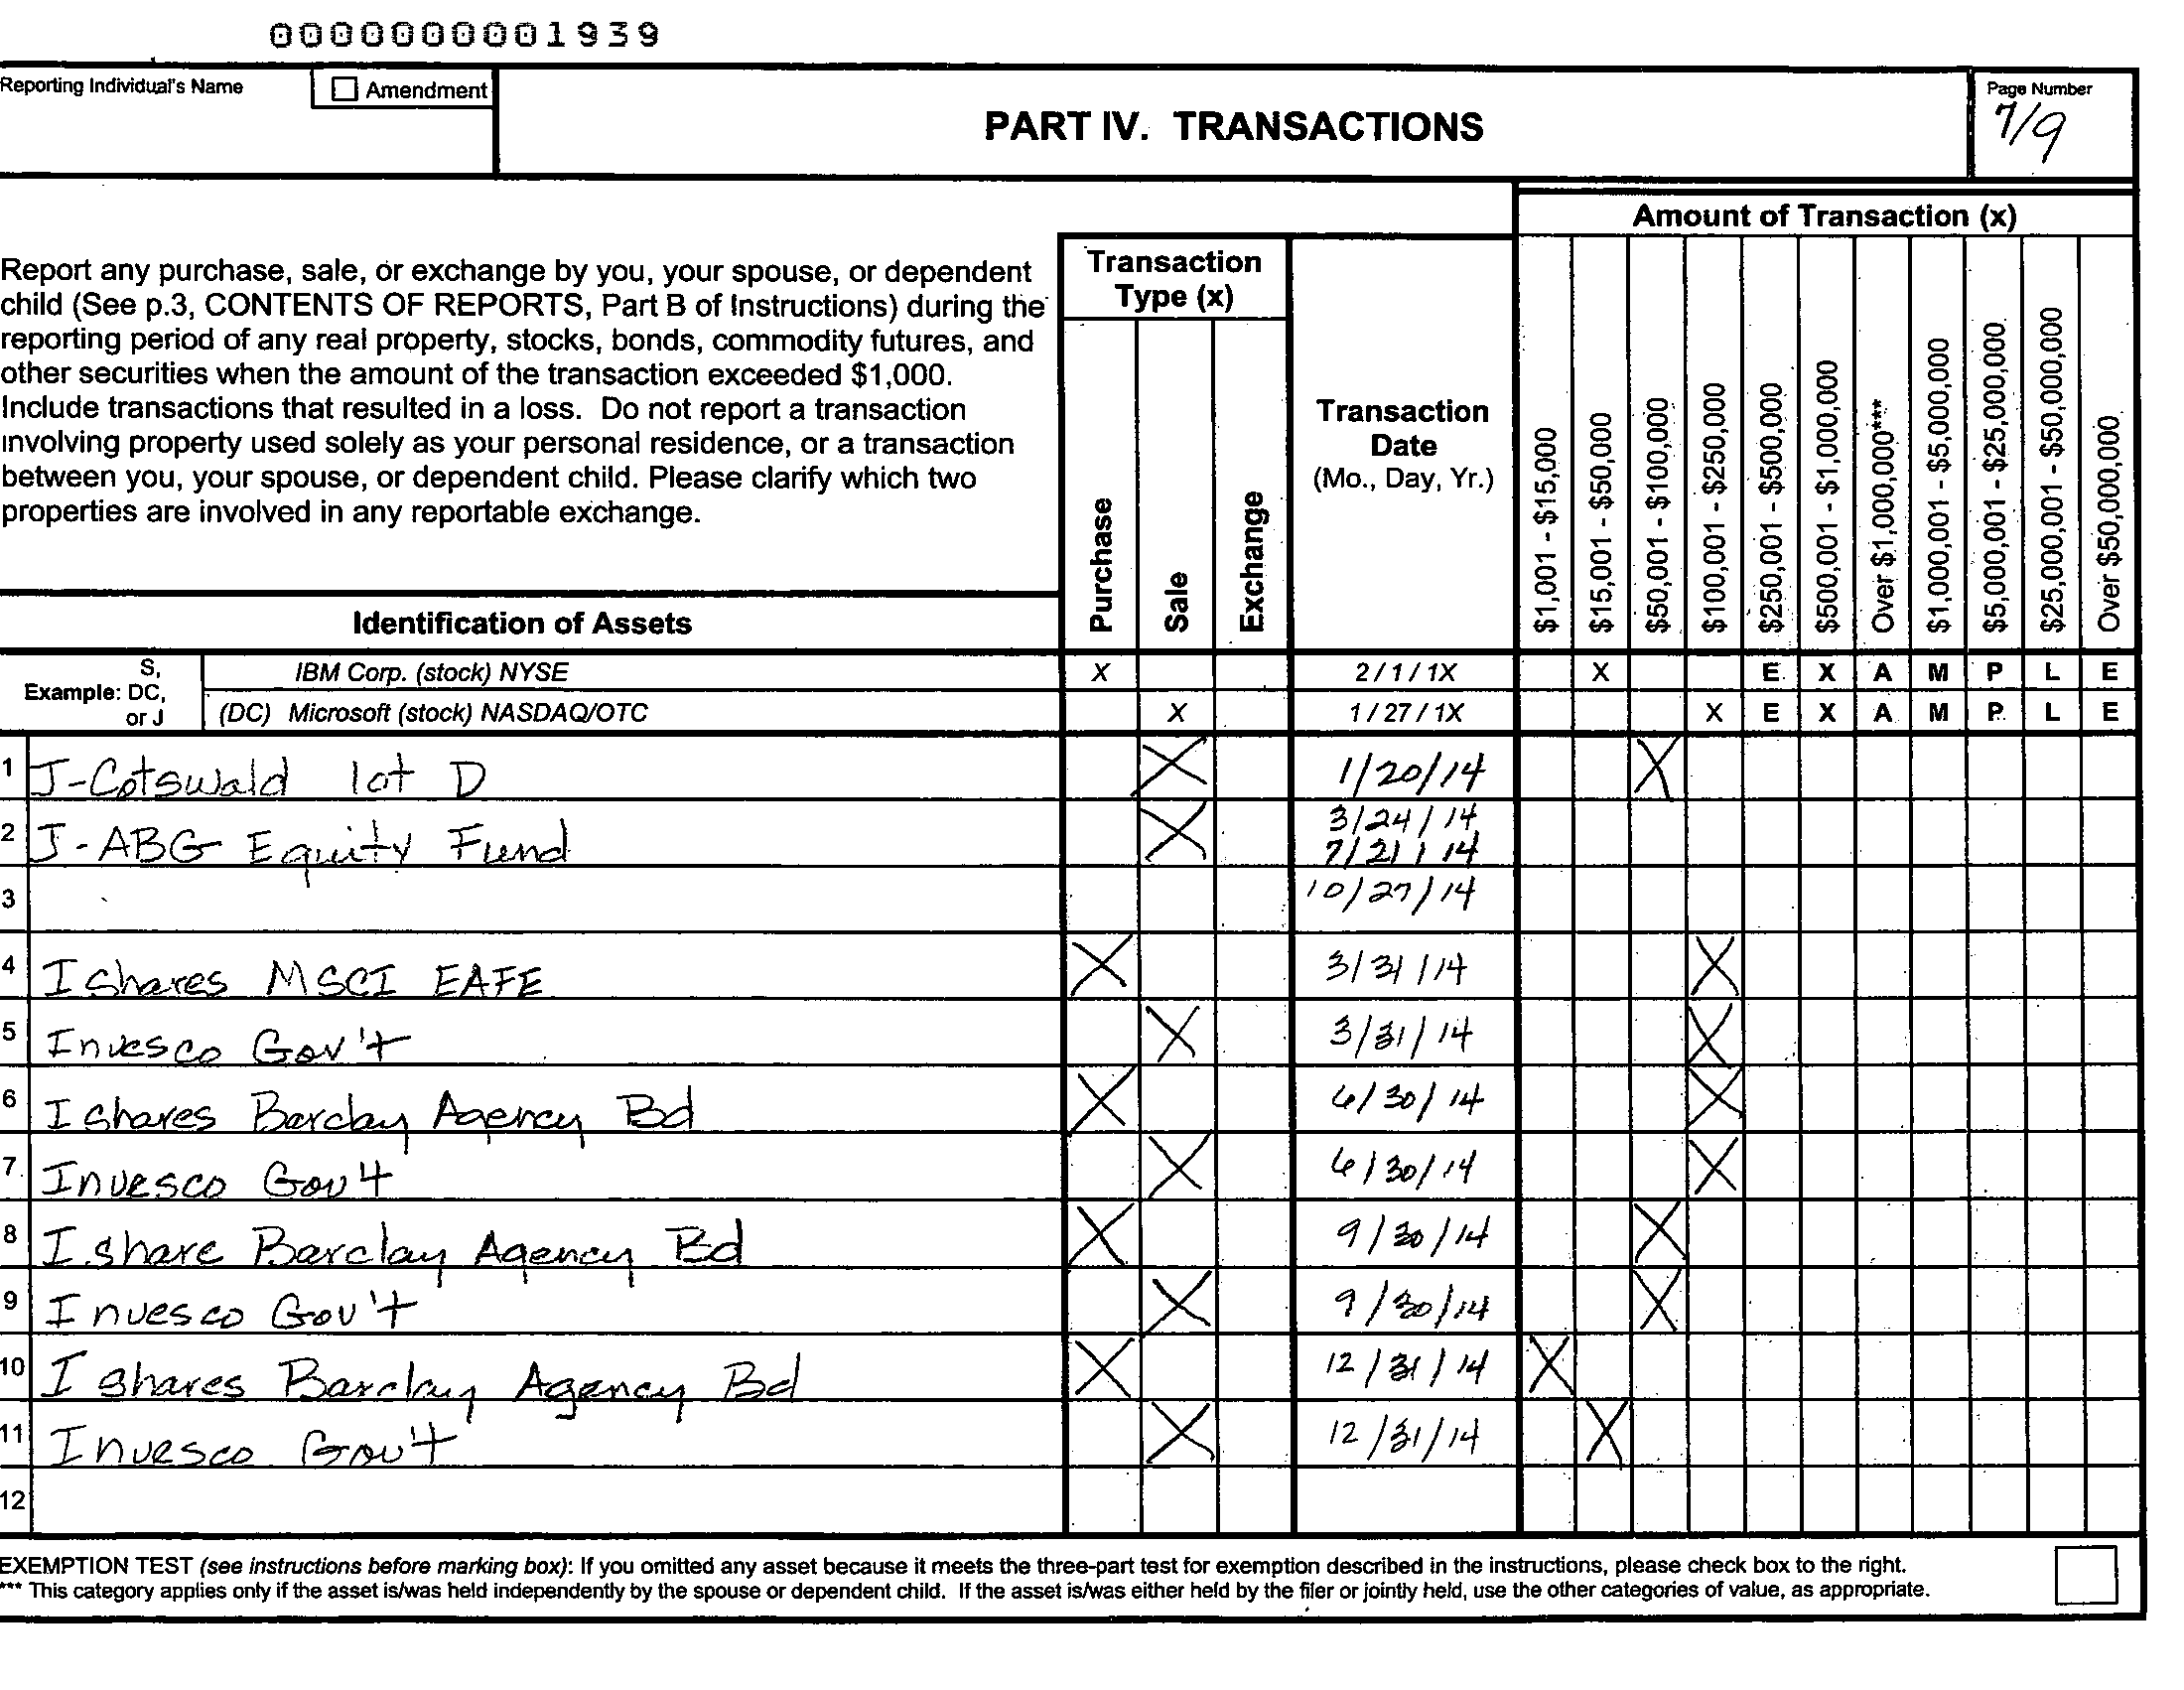 0000000001939
Reporting Individual's Name
☐ Amendment
PART IV. TRANSACTIONS
Page Number
7/9
Amount of Transaction (x)
Report any purchase, sale, or exchange by you, your spouse, or dependent
child (See p.3, CONTENTS OF REPORTS, Part B of Instructions) during the
reporting period of any real property, stocks, bonds, commodity futures, and
other securities when the amount of the transaction exceeded $1,000.
Include transactions that resulted in a loss. Do not report a transaction
involving property used solely as your personal residence, or a transaction
between you, your spouse, or dependent child. Please clarify which two
properties are involved in any reportable exchange.
Transaction
Type (x)
Purchase
Sale
Exchange
Transaction
Date
(Mo., Day, Yr.)
$1,001 - $15,000
$15,001 - $50,000
$50,001 - $100,000
$100,001 - $250,000
$250,001 - $500,000
$500,001 - $1,000,000
Over $1,000,000***
$1,000,001 - $5,000,000
$5,000,001 - $25,000,000
$25,000,001 - $50,000,000
Over $50,000,000
Identification of Assets
Example: S, DC, or J
IBM Corp. (stock) NYSE X 2/1/1X X E X A M P L E
(DC) Microsoft (stock) NASDAQ/OTC X 1/27/1X X E X A M P L E
1 J-Cotswald lot D X 1/20/14 X
2 J-ABG Equity Fund X 3/24/14
7/21/14
3 10/27/14
4 I shares MSCI EAFE X 3/31/14 X
5 Invesco Gov't X 3/31/14 X
6 I shares Barclay Agency Bd X 6/30/14 X
7 Invesco Gov't X 6/30/14 X
8 I share Barclay Agency Bd X 9/30/14 X
9 Invesco Gov't X 9/30/14 X
10 I shares Barclay Agency Bd X 12/31/14 X
11 Invesco Gov't X 12/31/14 X
12
EXEMPTION TEST (see instructions before marking box): If you omitted any asset because it meets the three-part test for exemption described in the instructions, please check box to the right.
*** This category applies only if the asset is/was held independently by the spouse or dependent child. If the asset is/was either held by the filer or jointly held, use the other categories of value, as appropriate.